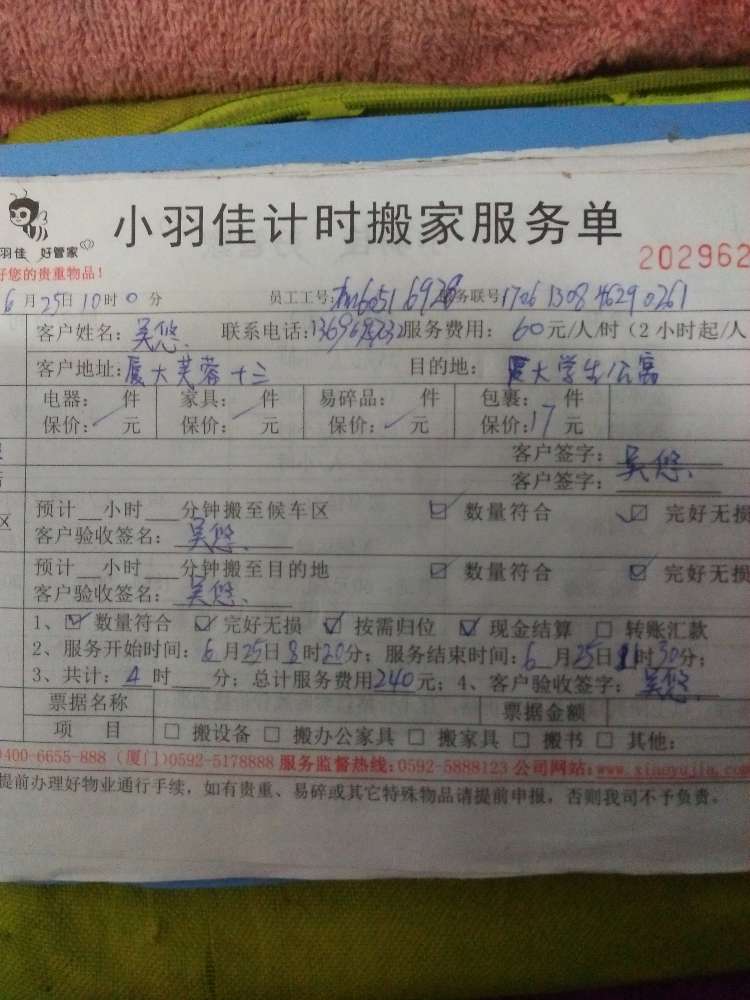 小羽佳计时搬家服务单
羽佳 好管家
202962
好您的贵重物品！
6月25日10时0分 员工工号: 务联号:1706130846290261
客户姓名: 吴悠 联系电话: 服务费用: 60元/人/时（2小时起/人
客户地址: 厦大芙蓉十三 目的地: 厦大学生公寓
电器: 件 家具: 件 易碎品: 件 包裹: 件
保价: 元 保价: 元 保价: 元 保价: 17元
客户签字: 吴悠
客户签字:
区 预计__小时___分钟搬至候车区 ☑ 数量符合 ☑ 完好无损
客户验收签名: 吴悠
预计__小时___分钟搬至目的地 ☑ 数量符合 ☑ 完好无损
客户验收签名: 吴悠
1、☑数量符合 ☑完好无损 ☑按需归位 ☑现金结算 □转账汇款
2、服务开始时间: 6月25日8时20分; 服务结束时间: 6月25日时30分;
3、共计: 4时___分; 总计服务费用240元; 4、客户验收签字: 吴悠
票据名称 票据金额
项 目 □搬设备 □搬办公家具 □搬家具 □搬书 □其他:
0400-6655-888 (厦门)0592-5178888 服务监督热线:0592-5888123 公司网站: www.xiaoyujia.com
提前办理好物业通行手续，如有贵重、易碎或其它特殊物品请提前申报，否则我司不予负责。